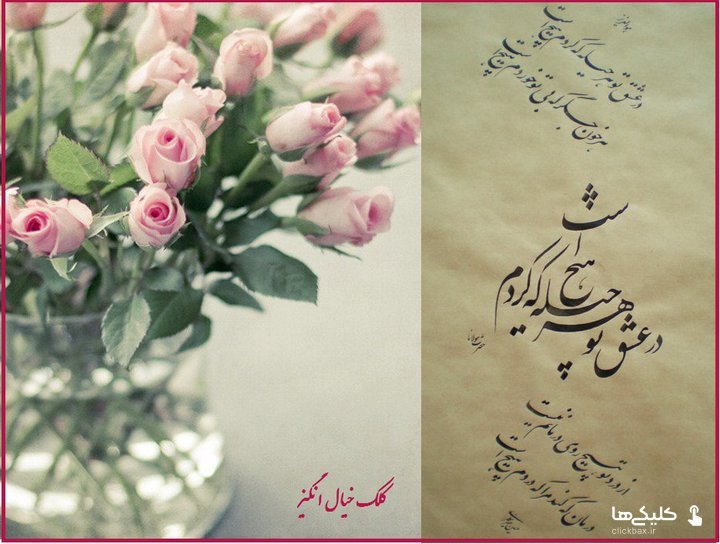 در عشق تو هر حیله که کردم هیچ است
هر خون جگر که بی تو خوردم هیچ است
در عشق تو هر حیله که کردم هیچ است
حضرت مولانا
از درد تو هیچ روی درمانم نیست
درمان که کند مرا که دردم هیچ است
کلک خیال انگیز
کلیکی‌ها
clickbax.ir